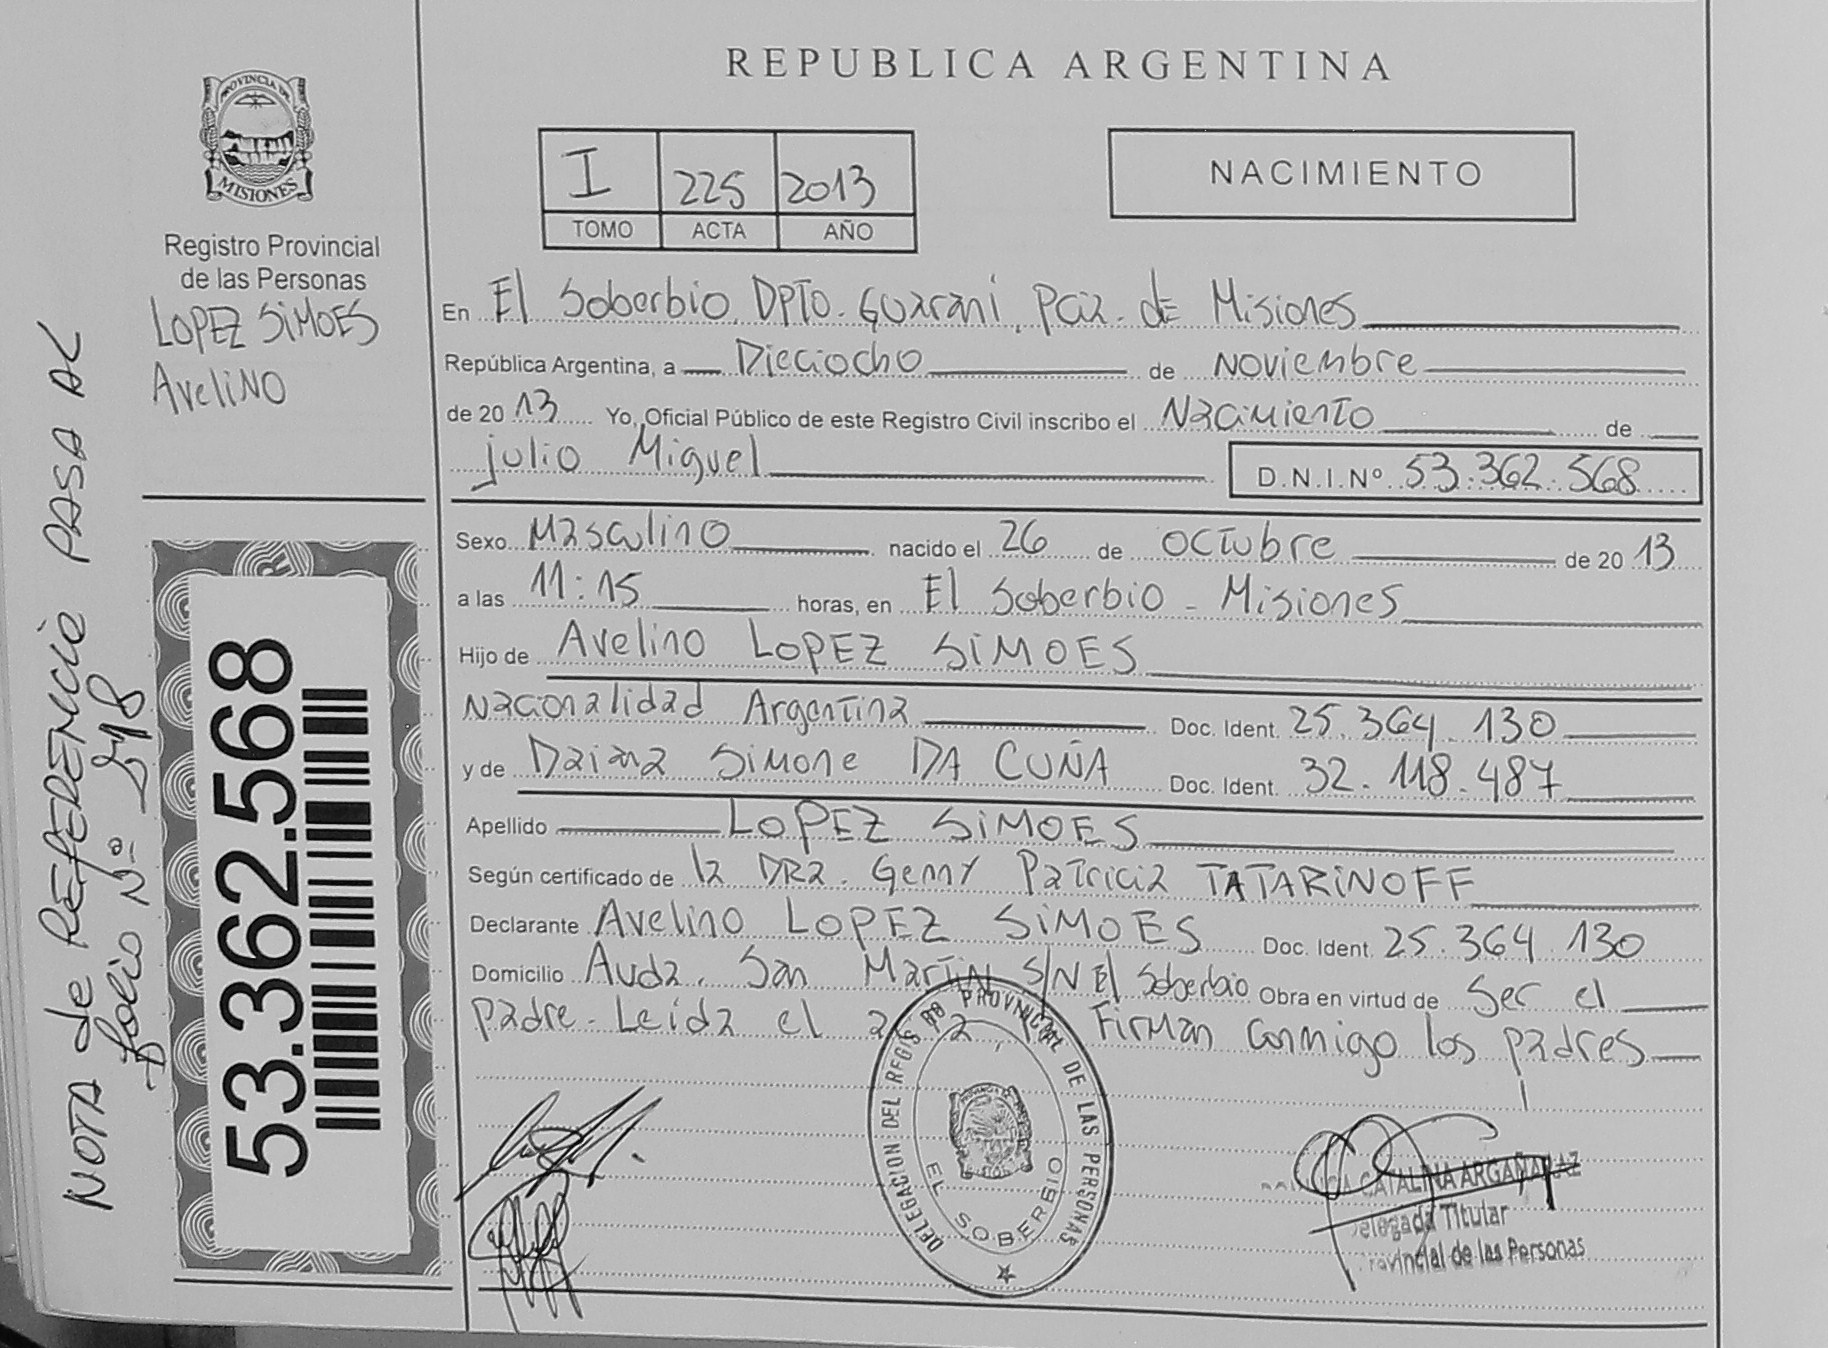 REPUBLICA ARGENTINA
PROVINCIA DE
MISIONES
Registro Provincial
de las Personas
LOPEZ SiMOES
AveliNO
I 225 2013
TOMO ACTA AÑO
NACIMIENTO
En El Soberbio, DPTO. Guarani, Pcia. de Misiones
República Argentina, a Dieciocho de Noviembre
de 2013 Yo, Oficial Público de este Registro Civil inscribo el Nacimiento de
julio Miguel D.N.I.Nº 53.362.568
Sexo Masculino nacido el 26 de octubre de 2013
a las 11:15 horas, en El Soberbio - Misiones
Hijo de Avelino LOPEZ SiMOES
Nacionalidad Argentina Doc. Ident. 25.364.130
y de Daiana Simone DA CUÑA Doc. Ident. 32.118.487
Apellido LOPEZ SiMOES
Según certificado de la DRa. Genny Patricia TATARiNOFF
Declarante Avelino LOPEZ SiMOES Doc. Ident. 25.364.130
Domicilio Avda. San Martin S/N El Soberbio Obra en virtud de Ser el
padre - Leida el Firman conmigo los padres
NOTA de REFERENCIA PASA AL
folio Nº
53.362.568
DELEGACION DEL REGISTRO PROVINCIAL DE LAS PERSONAS
EL SOBERBIO
CATALINA ARGAÑARAZ
Delegada Titular
Provincial de las Personas